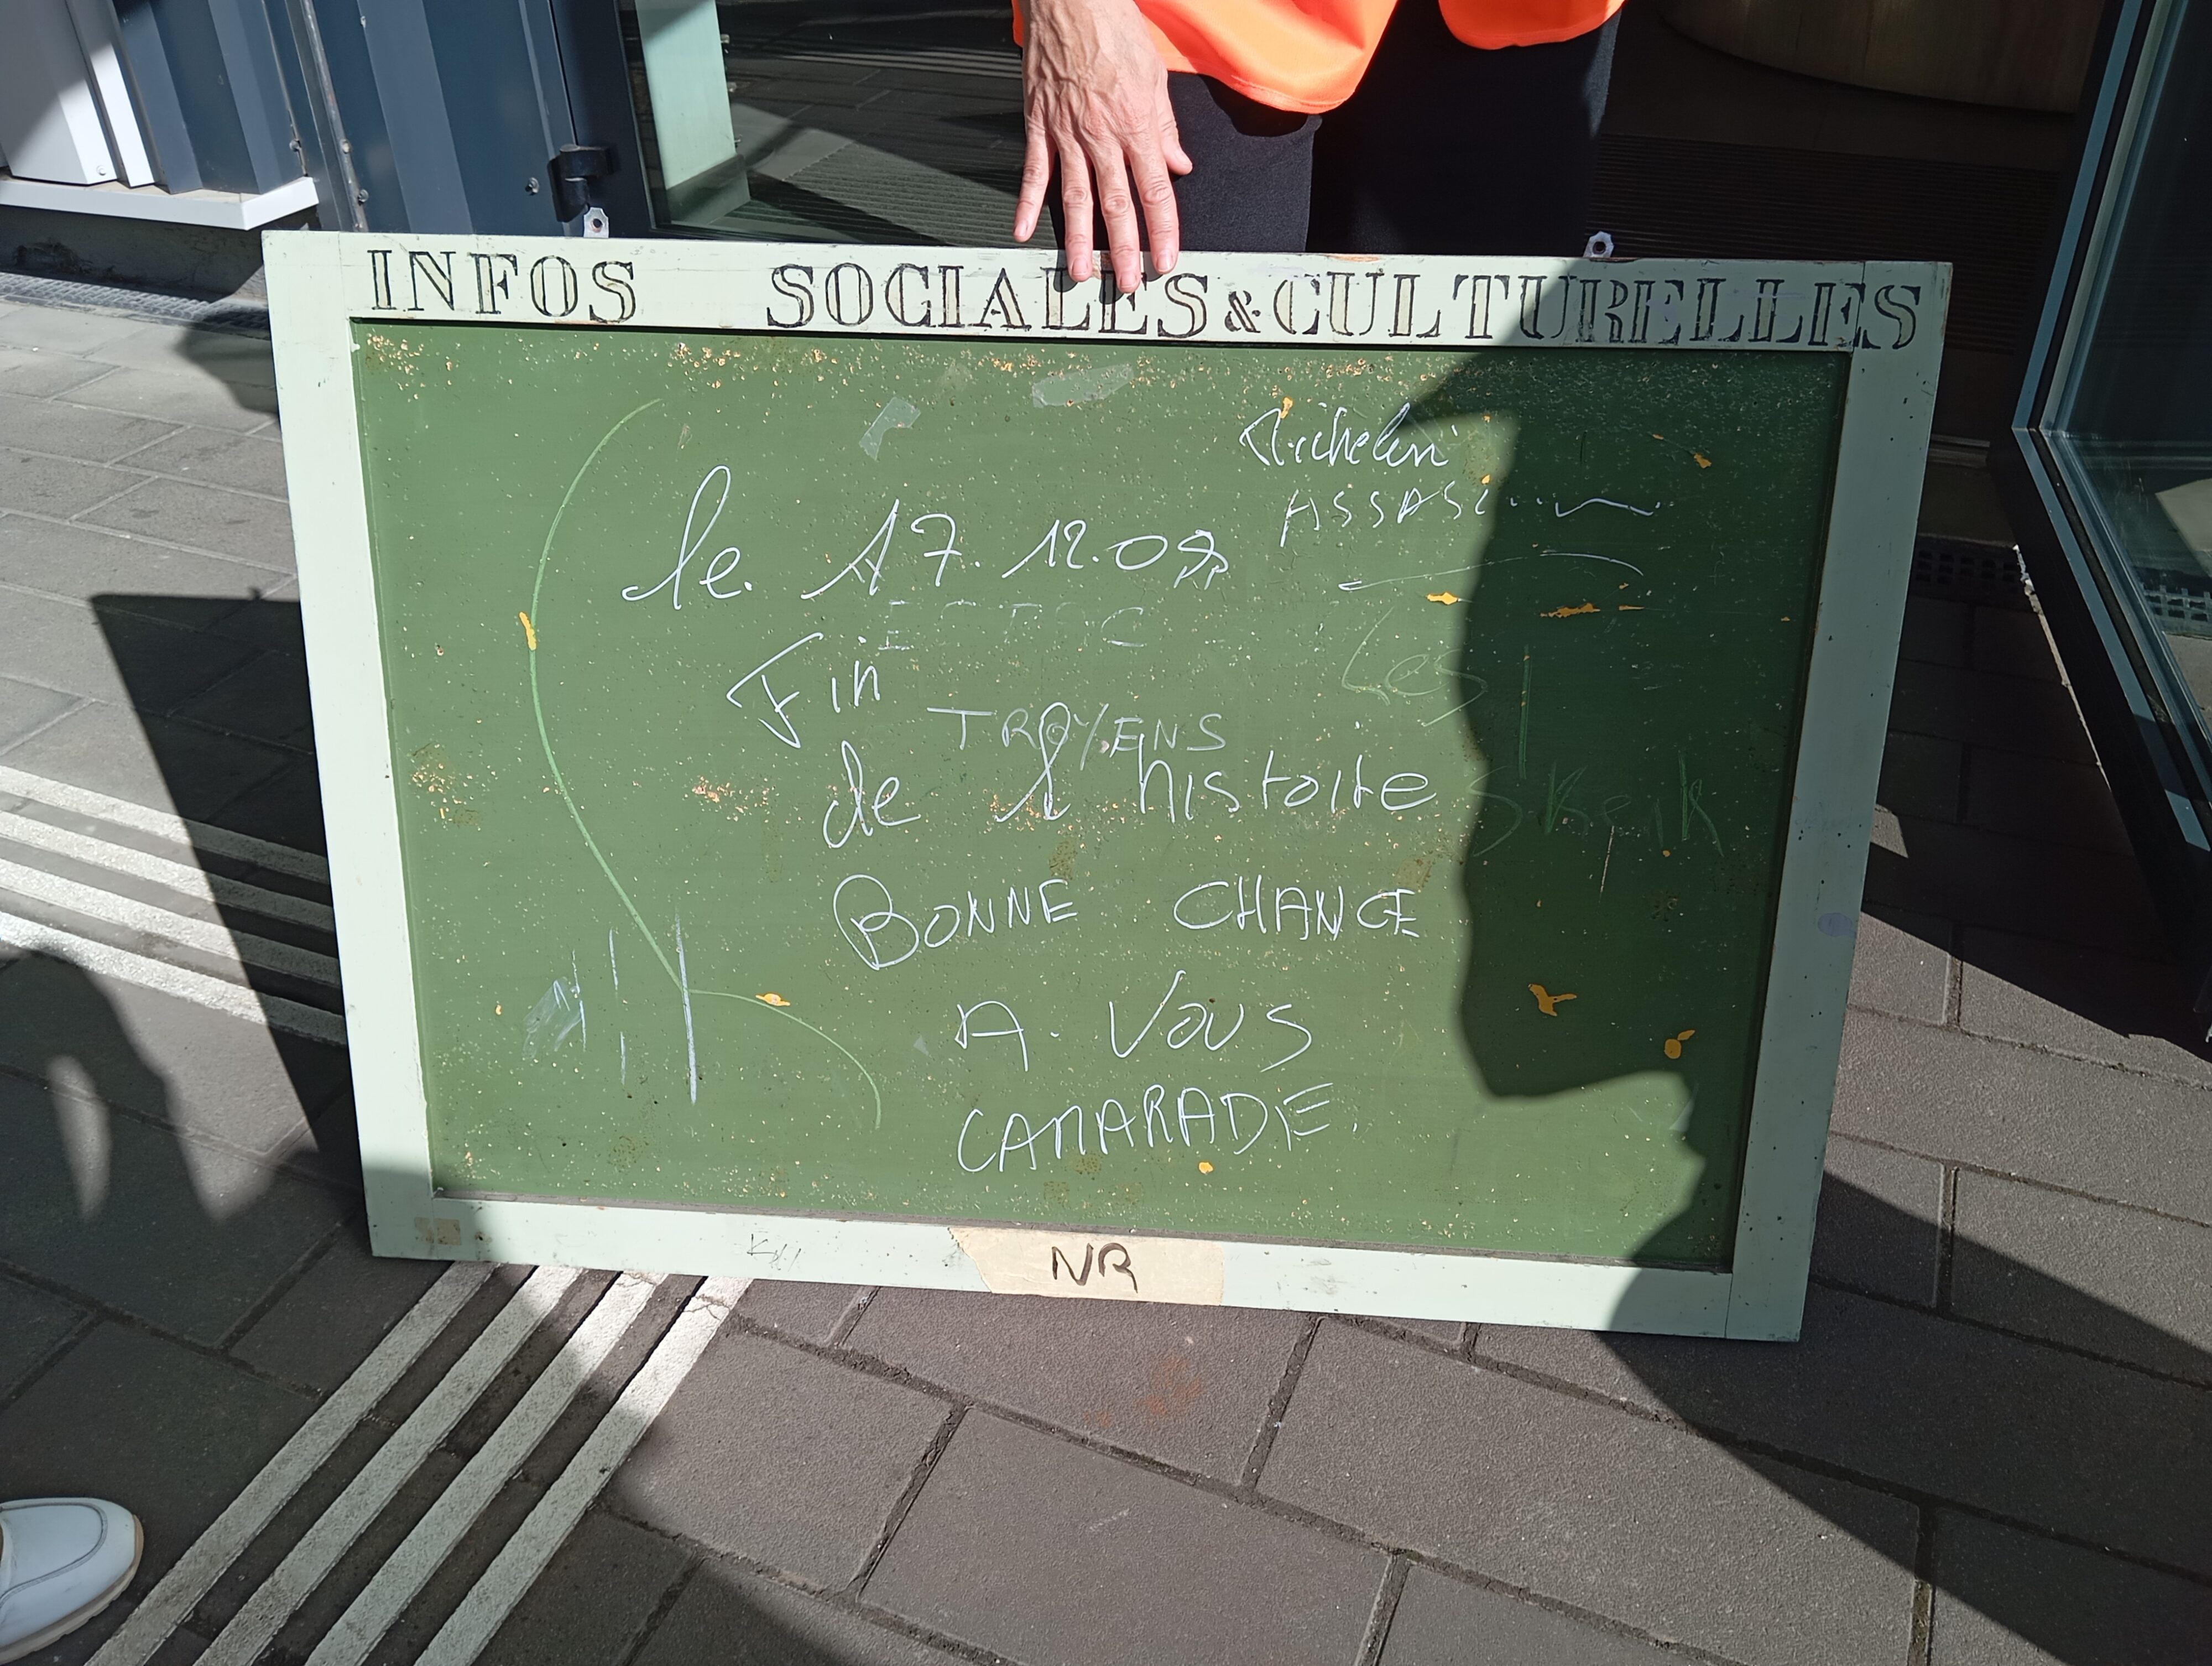 INFOS SOCIALES & CULTURELLES
Michelin
ASSASSIN
le. 17.12.09
Fin
TROYENS
de l'histoire
Les
BONNE CHANCE
A. VOUS
CAMARADE.
NR